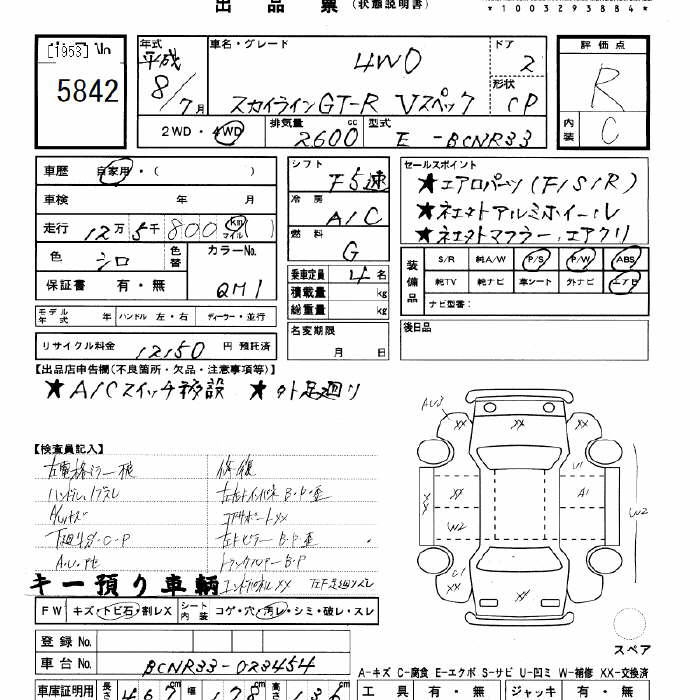 出品票(状態説明書)
*1003293884*
[1953] No
5842
年式
平成
8/7月
車名・グレード
4WD
スカイライン GT-R Vスペック
ドア
2
形状
CP
評価点
R
内装
C
2WD・4WD
排気量
2600 cc
型式
E-BCNR33
車歴 自家用・( )
車検 年 月
走行 12万5千800 (km マイル)
色 シロ
色替
カラーNo.
QM1
保証書 有・無
モデル年式 年 ハンドル 左・右 ディーラー・並行
リサイクル料金 12150円 預託済
シフト
F5速
冷房
A/C
燃料
G
乗車定員 4名
積載量 kg
総重量 kg
名変期限
月 日
セールスポイント
★エアロパーツ(F/S/R)
★社外アルミホイール
★社外マフラー、エアクリ
装備品
S/R 純A/W P/S P/W ABS
純TV 純ナビ 車シート 外ナビ エアB
ナビ型番:
後日品
【出品店申告欄(不良箇所・欠品・注意事項等)】
★A/Cスイッチ移設 ★外足廻り
【検査員記入】
左電格ミラー
修復
ハンドル
B・P・歪
コアサポートXX
下廻
C・P
左
ピラー B・P・歪
トランクフロアーB・P
XX
キー預り車輌
FW キズ・トビ石・割レX
シート内装 コゲ・穴・汚レ・シミ・破レ・スレ
登録No.
車台No. BCNR33-023454
車庫証明用 長さ 467cm 幅 178cm 高さ 136cm
AU3
XX
XX
U1
XX
XX
A1
W2
W2
C1
XX
XX
スペア
A-キズ C-腐食 E-エクボ S-サビ U-凹ミ W-補修 XX-交換済
工具 有・無 ジャッキ 有・無